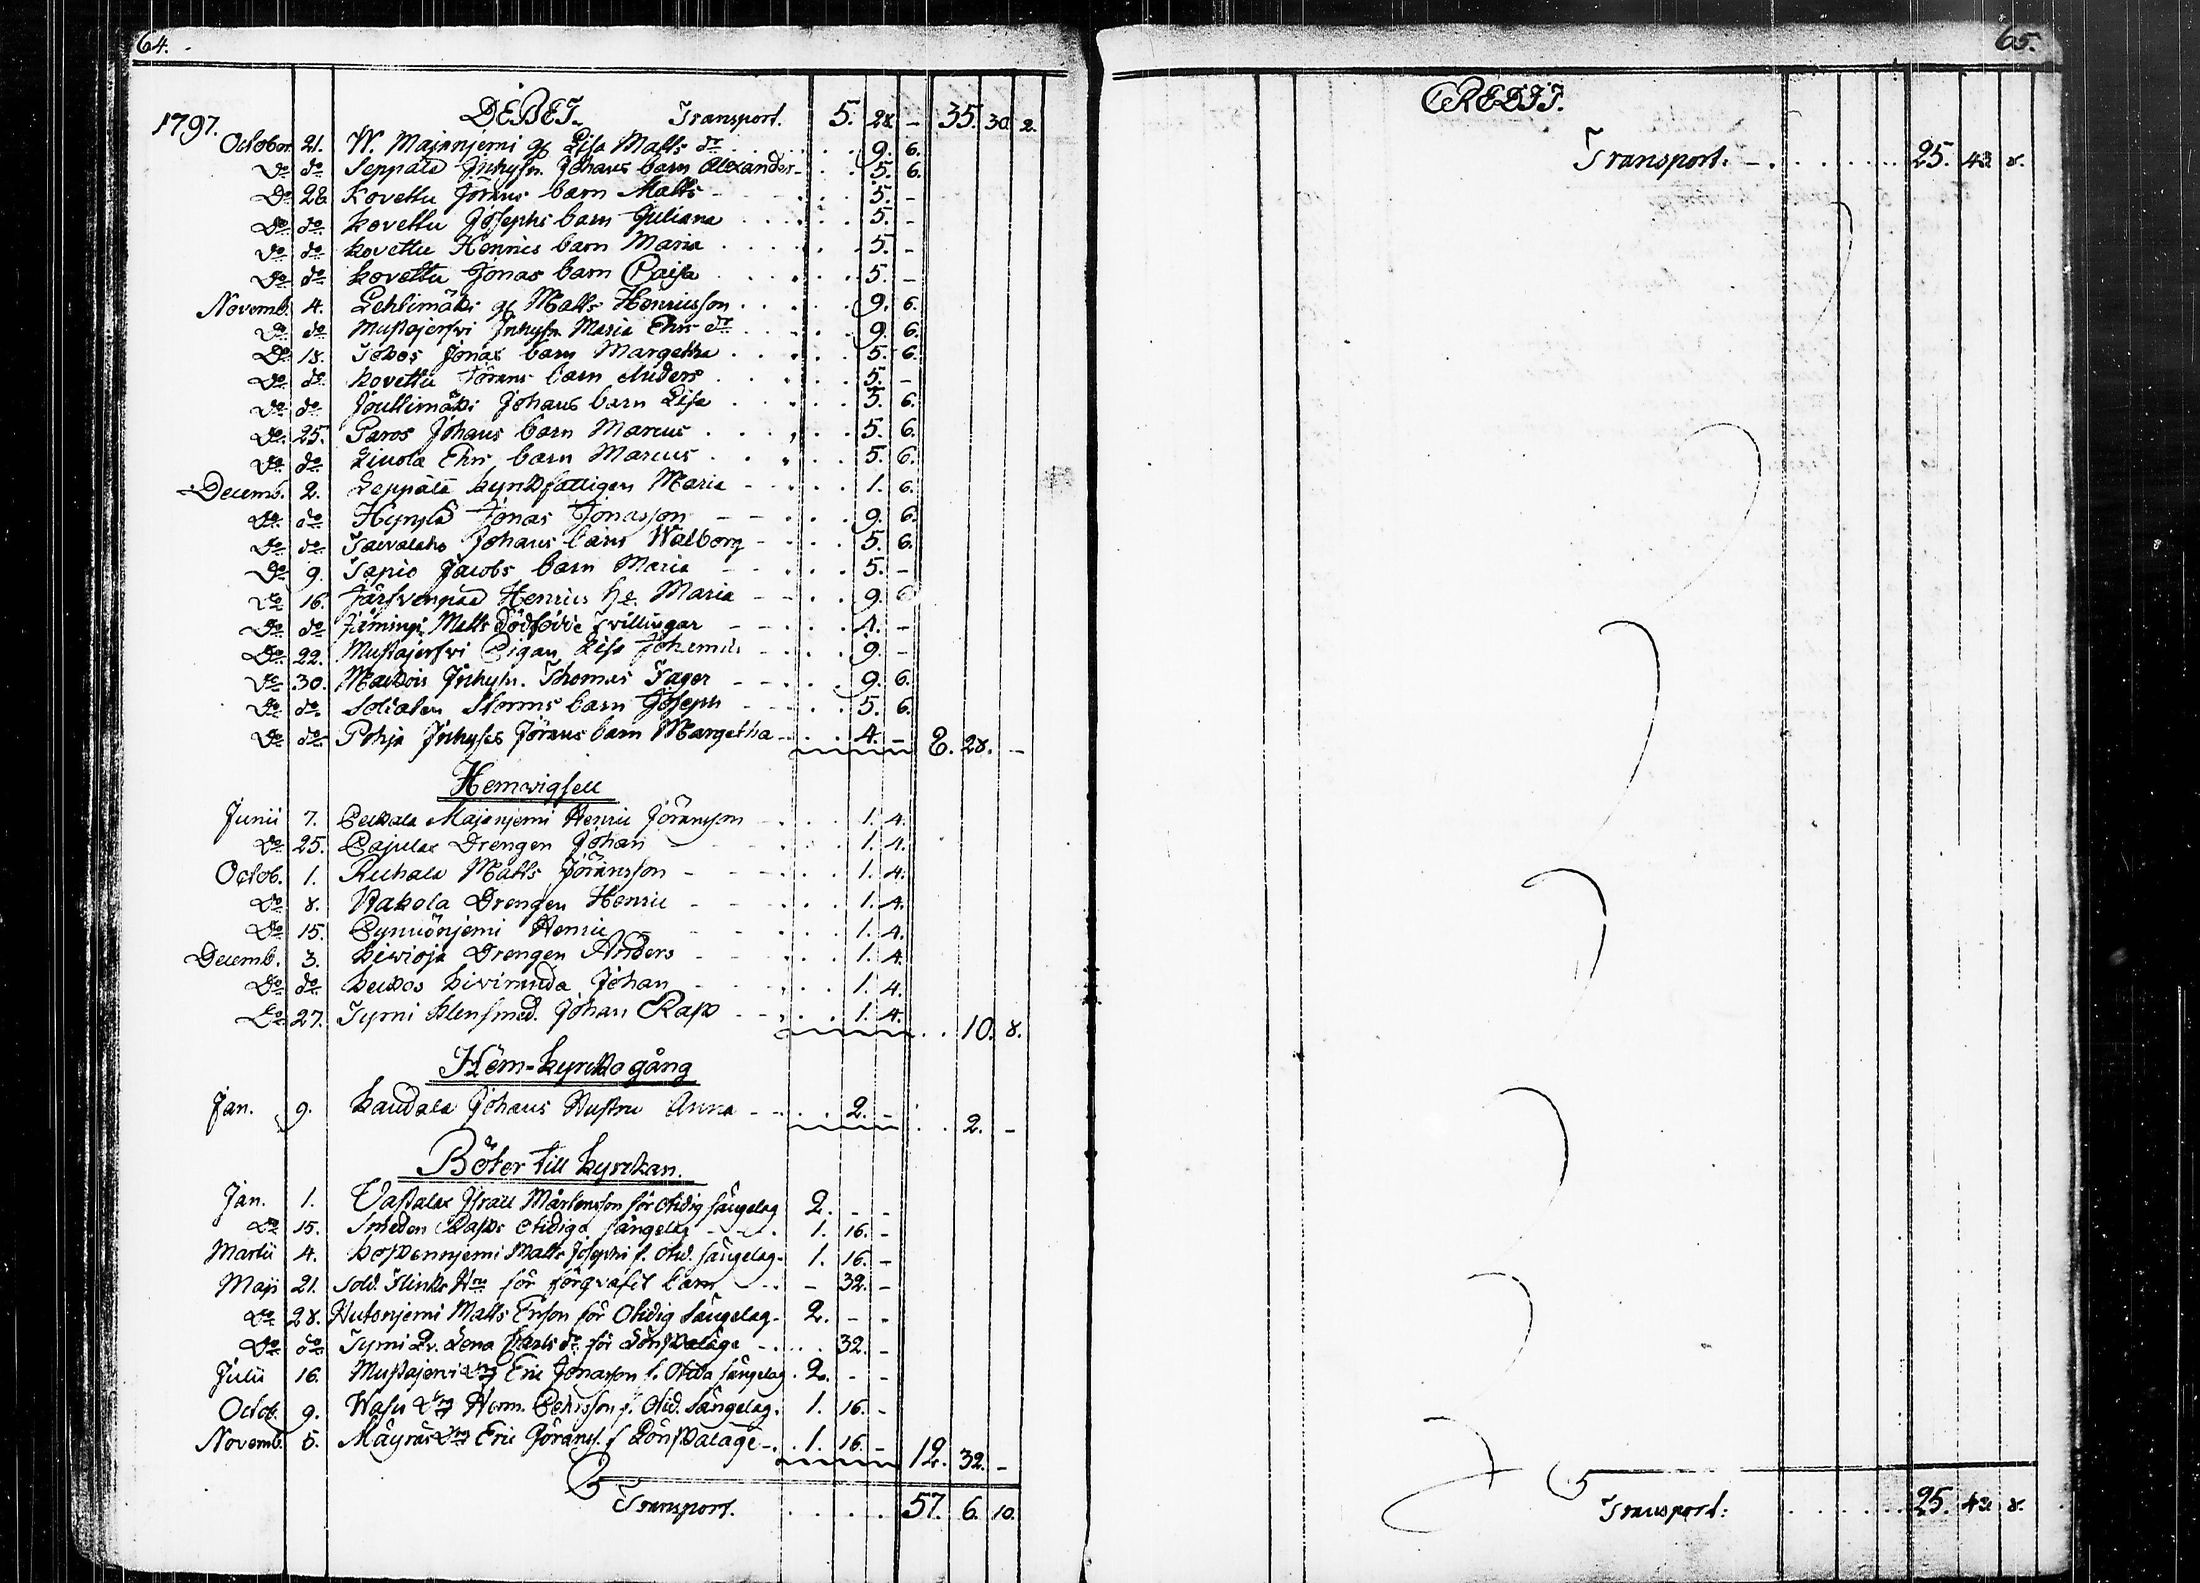 64.
1797. DEBET. Transport. 5. 28 - 35. 30. 2.
October 21. W. Majanjemi Lisa Matts dr 9. 6.
Do do Seppälä Inhyſn. Johans barn Alexander 5. 6.
Do 28 Kovettu Jörans barn Matts 5. -
Do do Kovettu Josephs barn Juliana 5. -
Do do Kovettu Henrics barn Maria 5. -
Do do Kovettu Jonas barn Caisa 5. -
Novemb. 4. Lehtimäki Matts Henricsson 9. 6.
Do do Mustajerfvi Inhyſn Maria Ehrs dr 9. 6.
Do 18. Jonas barn Margetha 5. 6.
Do do Kovettu Jörans barn Anders 5. -
Do do Johans barn Lisa 5. 6.
Do 25. Paros Johans barn Marcus 5. 6.
Do do Ehrs barn Marcus 5. 6.
Decemb. 2. Leppälä Maria 1. 6.
Do do Jonas Jonasson 9. 6.
Do do Johans barn Walborg 5. 6.
Do 9. Tapio Jacobs barn Maria 5. -
Do 16. Järfvenpää Henrics Maria 9. 6
Do do Matts dödfödde tvillingar 4. -
Do 22. Mustajerfvi Pigan Lisa 9. -
Do 30. Inhyſn. Thomas Fager 9. 6.
Do do Soldaten Storms barn Joseph 5. 6.
Do do Pohja Inhyſes Jörans barn Margetha 4. - 8. 28. -
Hemvigſell
Junii 7. Majanjemi Henric Jöransson 1. 4.
Do 25. Pajulax Drengen Johan 1. 4.
Octob. 1. Ruhala Matts Jöransson 1. 4.
Do 8. Drengen Henric 1. 4.
Do 15. Pynnönjemi Henric 1. 4.
Decemb. 3. Kivioja Drengen Anders 1. 4.
Do do Kiviranda Johan 1. 4.
Do 27. Tyrni Klensmed. Johan Rask 1. 4. 10. 8.
Hem-kyrkogång
Jan. 9. Johans Hustru Anna 2. - 2. -
Böter till kyrckan.
Jan. 1. Israel Mårtensson för otidig sängelag 2. - -
Do 15. Smeden Rasks otidiga sängelag 1. 16. -
Martii 4. Matts Josephs f. otid. sängelag 1. 16. -
Maji 21. Sold. Flinks Hru för förqvafit barn - 32. -
Do 28. Matts Ersson för Otidig sängelag 2. - -
Do do Tyrni Lena dr för Lönskaläge 32. -
Julii 16. Mustajervi Eric Jonasson f. Otida sängelag 2. - -
Octob. 9. Herm. Pehrsson f. Otid. Sängelag. 1. 16. -
Novemb. 5. Mäyräs Eric Jöranss. f Lönskaläge 1. 16. - 12. 32. -
Transport. 57. 6. 10.
65.
CREDIT.
Transport. 25. 42 8.
Transport: 25. 42 8.